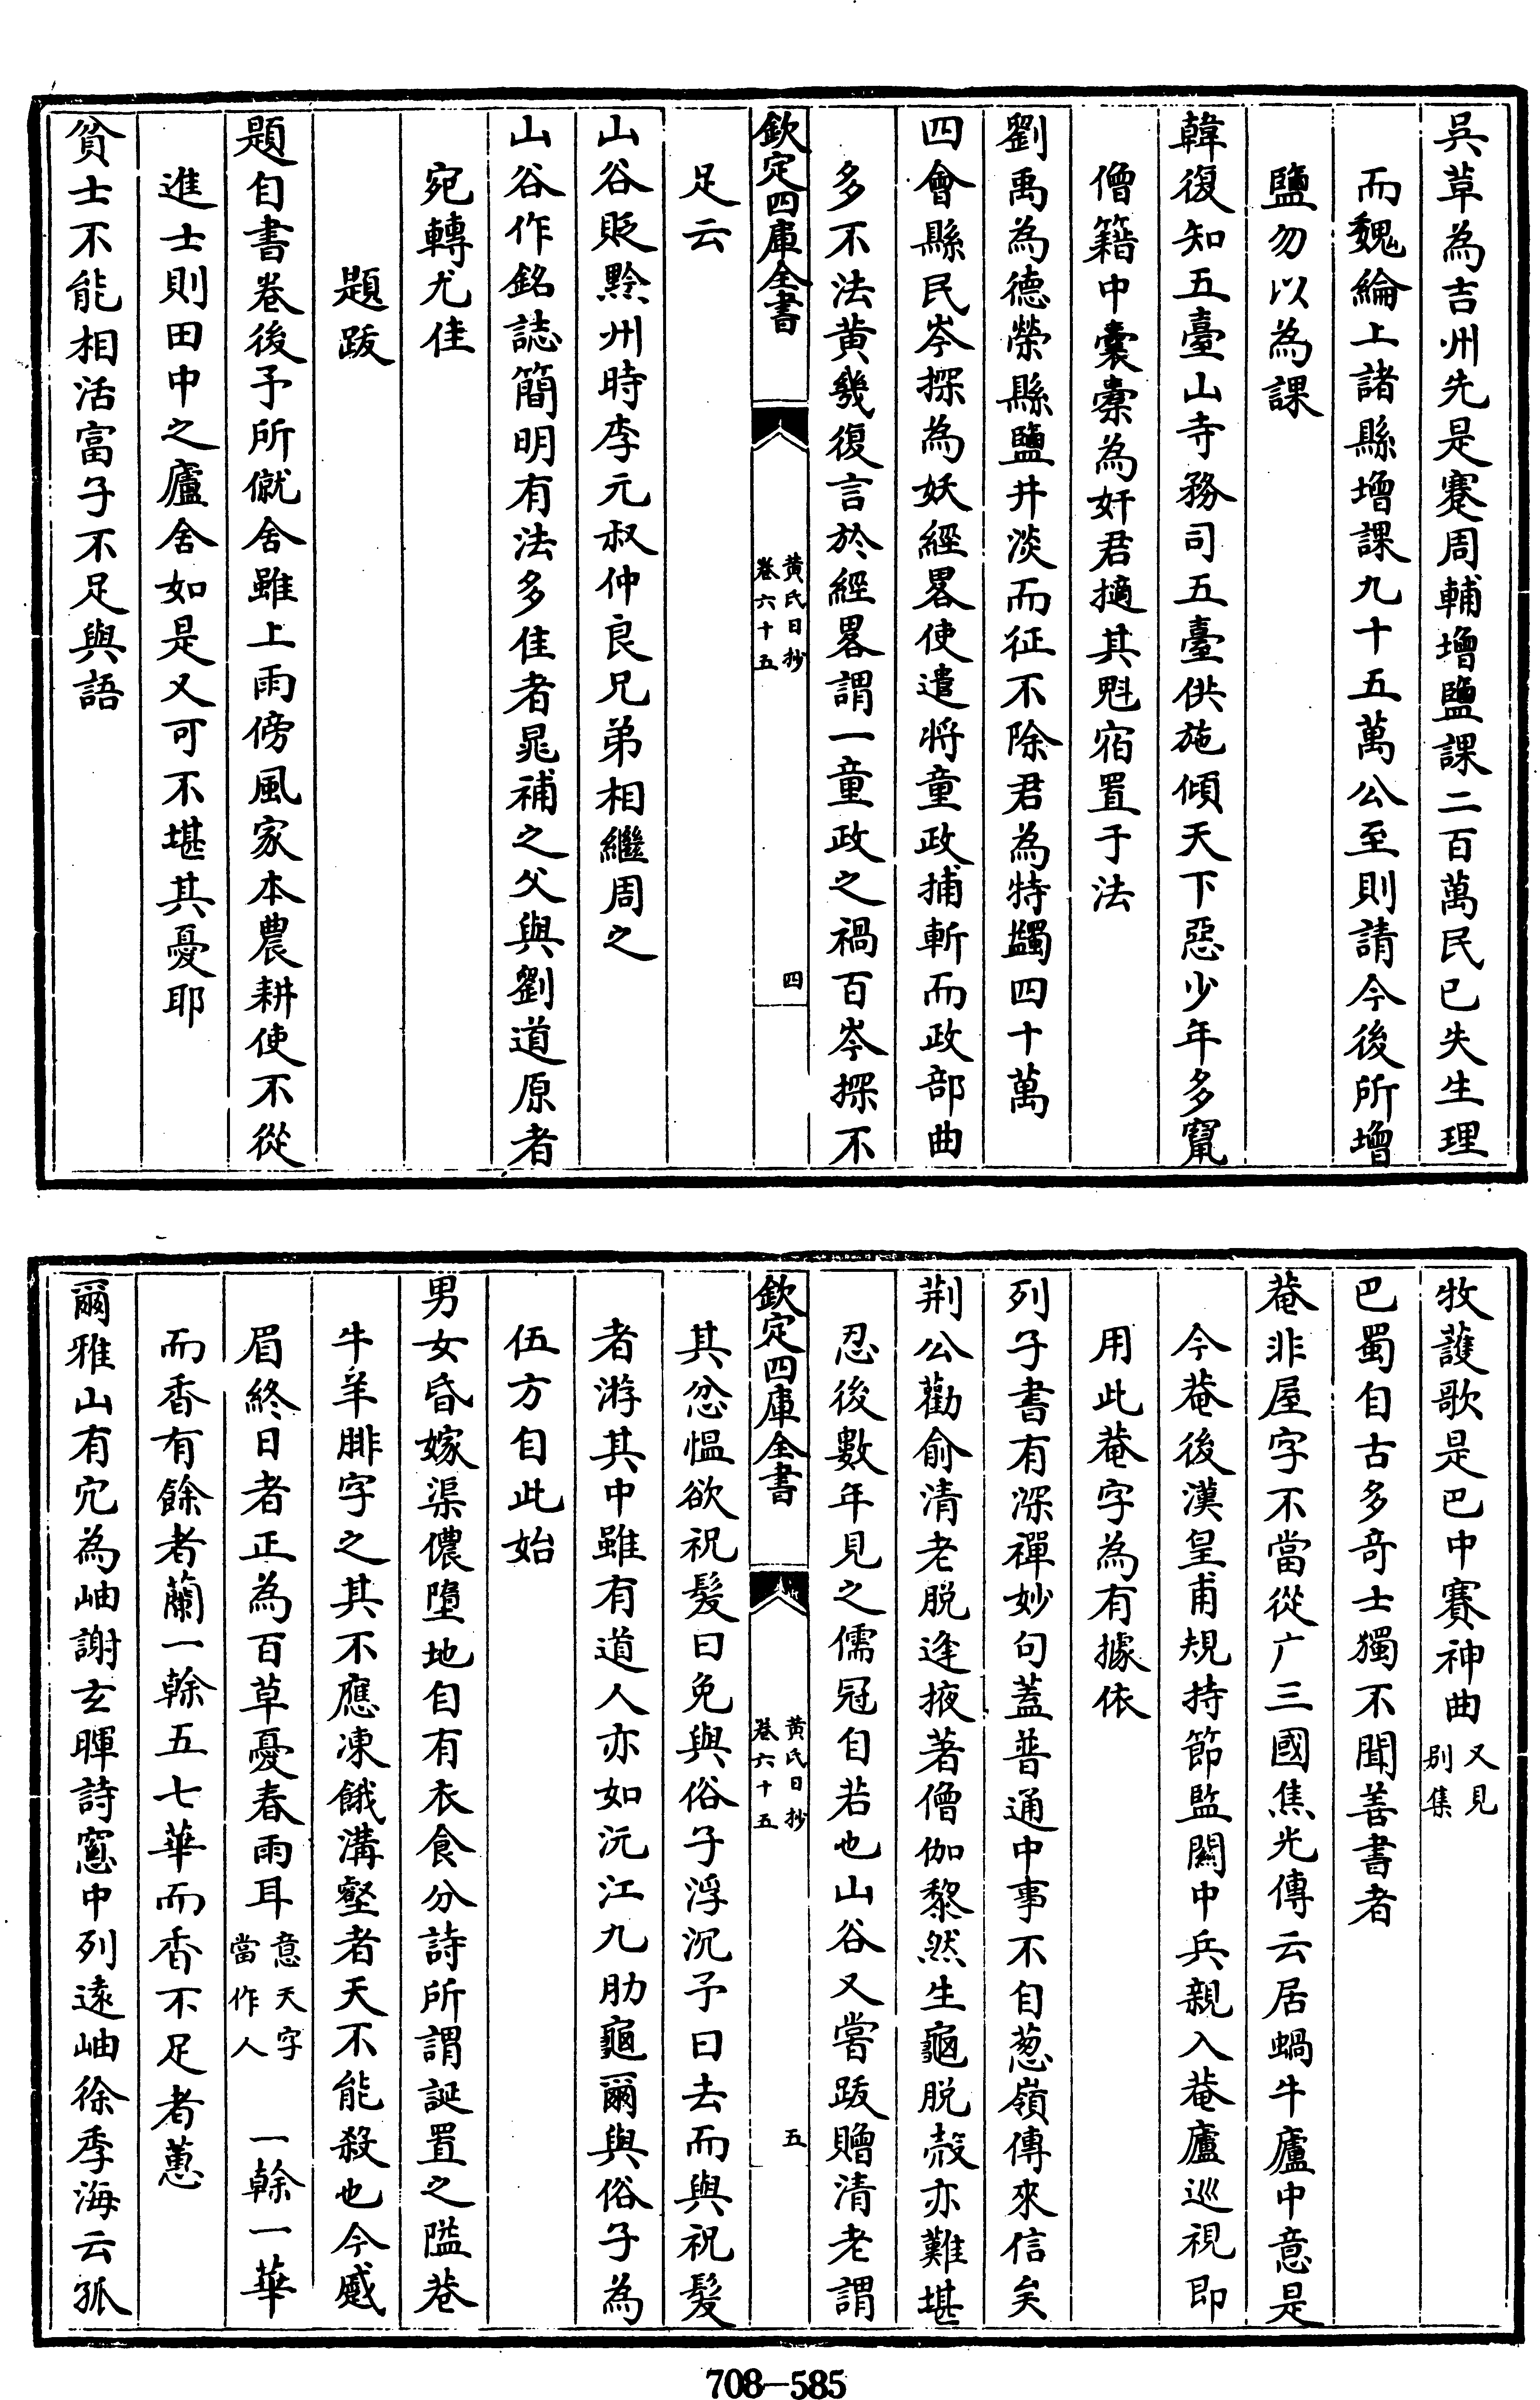 吳草為吉州先是蹇周輔增鹽課二百萬民已失生理
而魏綸上諸縣增課九十五萬公至則請今後所增
鹽勿以為課
韓復知五臺山寺務司五臺供施傾天下惡少年多竄
僧籍中囊橐為奸君擿其魁宿置于法
劉禹為德榮縣鹽井淡而征不除君為特蠲四十萬
四會縣民岑探為妖經畧使遣將童政捕斬而政部曲
多不法黃幾復言於經畧謂一童政之禍百岑探不
欽定四庫全書
黃氏日抄
卷六十五
四
足云
山谷貶黔州時李元叔仲良兄弟相繼周之
山谷作銘誌簡明有法多佳者晁補之父與劉道原者
宛轉尤佳
題跋
題自書卷後予所僦舍雖上雨傍風家本農耕使不從
進士則田中之廬舍如是又可不堪其憂耶
貧士不能相活富子不足與語
牧護歌是巴中賽神曲又見
別集
巴蜀自古多奇士獨不聞善書者
菴非屋字不當從广三國焦光傳云居蝸牛廬中意是
今菴後漢皇甫規持節監關中兵親入菴廬巡視即
用此菴字為有據依
列子書有深禪妙句蓋普通中事不自葱嶺傳來信矣
荆公勸俞清老脫逢掖著僧伽黎然生龜脫殼亦難堪
忍後數年見之儒冠自若也山谷又嘗跋贈清老謂
欽定四庫全書
黃氏日抄
卷六十五
五
其忿愠欲祝髮曰免與俗子浮沉予曰去而與祝髮
者游其中雖有道人亦如沅江九肋龜爾與俗子為
伍方自此始
男女昏嫁渠儂墮地自有衣食分詩所謂誕置之隘巷
牛羊腓字之其不應凍餓溝壑者天不能殺也今慼
眉終日者正為百草憂春雨耳意天字
當作人　一榦一華
而香有餘者蘭一榦五七華而香不足者蕙
爾雅山有穴為岫謝玄暉詩窻中列遠岫徐季海云孤
708—585